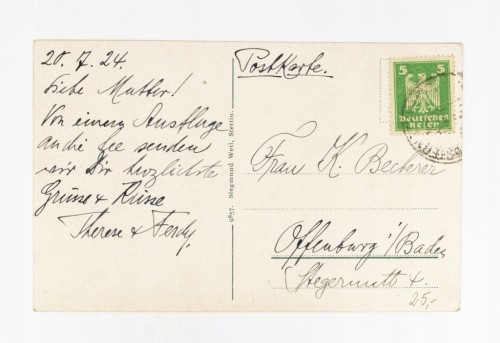 20.7.24.
Liebe Mutter!
Von einem Ausfluge
an die See senden
wir Dir herzlichste
Grüsse & Küsse
Therese & Ferdy.
Postkarte.
5 5
Deutsches
Reich
Frau K. Becherer
Offenburg i/Baden
Stegermatt 4.
25,-
9857. Siegmund Weil, Stettin.